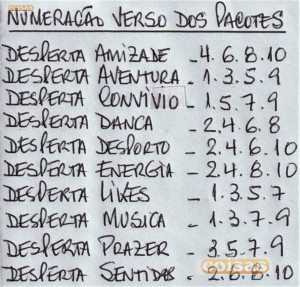 NUMERAÇÃO VERSO DOS PACOTES
DESPERTA AMIZADE - 4.6.8.10
DESPERTA AVENTURA - 1.3.5.9
DESPERTA CONVÍVIO - 1.5.7.9
DESPERTA DANCA - 2.4.6.8
DESPERTA DESPORTO - 2.4.6.10
DESPERTA ENERGIA - 2.4.8.10
DESPERTA LIKES - 1.3.5.7
DESPERTA MUSICA - 1.3.7.9
DESPERTA PRAZER - 3.5.7.9
DESPERTA SENTIDOS - 2.6.8.10
coisas